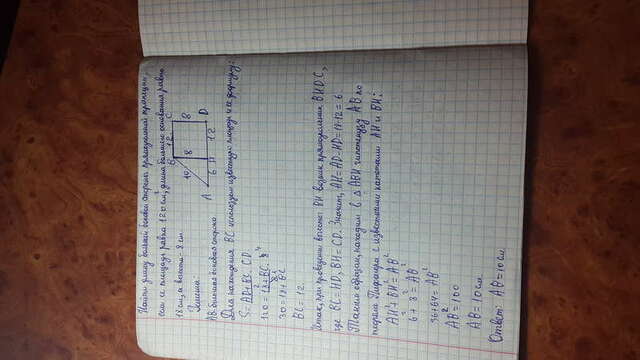 Найти длину большей боковой стороны прямоугольной трапеции,
если её площадь равна 120 см, длина большего основания равна
18 см, а высота - 8 см.
Решение:
B 12 C
10 8 8
A 6 H 12 D
AB - большая боковая сторона
Для нахождения BC используем известную площадь и её формулу:
S = AD+BC · CD
2
120 = 18+BC · 8 4
2 1
30 = 18+BC
BC = 12.
Итак, при проведении высоты BH возник прямоугольник BHDC,
где BC=HD, BH=CD. Значит, AH=AD-HD=18-12=6
Таким образом, находим в △ABH гипотенузу AB по
теореме Пифагора с известными катетами AH и BH:
AH²+BH²=AB²
6²+8²=AB²
36+64=AB²
AB²=100
AB=10 см.
Ответ: AB=10 см.